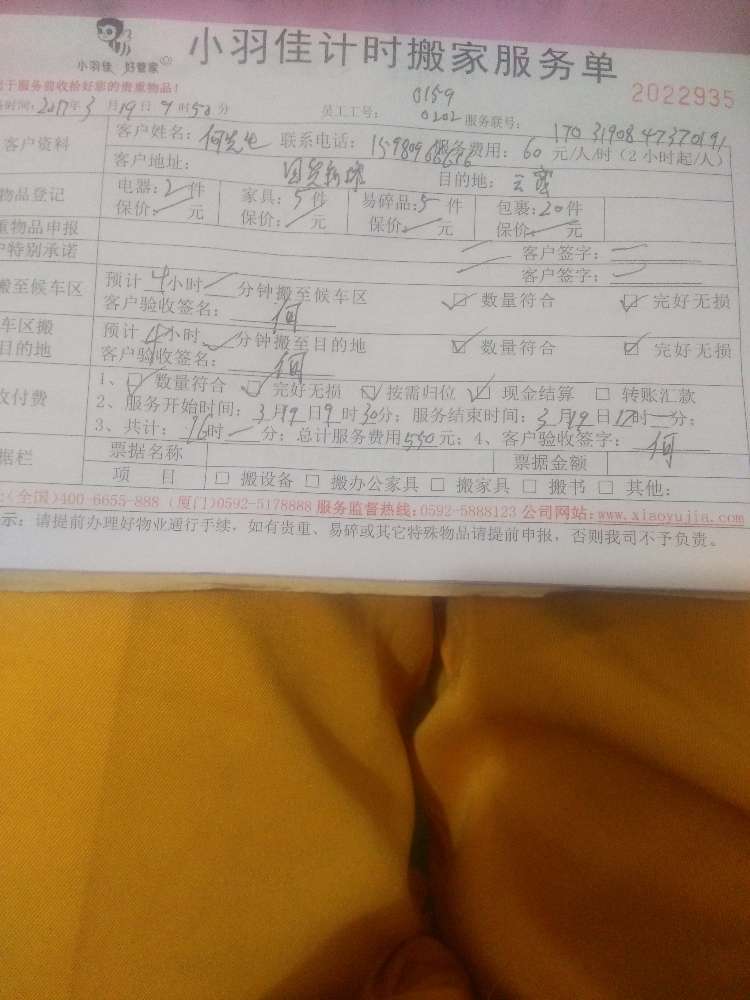 小羽佳计时搬家服务单
小羽佳·好管家
于服务前收拾好您的贵重物品！
2022935
时间：2017年3月19日9时50分
员工工号：0159 0202
服务联号：1703190847370191
客户资料
客户姓名：何先生 联系电话： 服务费用：60元/人/时（2小时起/人）
客户地址：国贸新城 目的地：
物品登记
电器：2件 家具：5件 易碎品：5件 包裹：20件
保价： 元 保价： 元 保价： 元 保价： 元
重物品申报
客户签字：
户特别承诺
客户签字：
搬至候车区
预计4小时 分钟搬至候车区
客户验收签名：何
☑ 数量符合 ☑ 完好无损
车区搬
目的地
预计4小时 分钟搬至目的地
客户验收签名：何
☑ 数量符合 ☑ 完好无损
收付费
1、☑ 数量符合 ☑ 完好无损 ☑ 按需归位 ☑ 现金结算 □ 转账汇款
2、服务开始时间：3月19日9时30分；服务结束时间：3月19日 时 分；
3、共计： 时 分；总计服务费用550元；4、客户验收签字：何
据栏
票据名称 票据金额
项 目 □ 搬设备 □ 搬办公家具 □ 搬家具 □ 搬书 □ 其他：
（全国）400-6655-888（厦门）0592-5178888 服务监督热线：0592-5888123 公司网站：www.xiaoyujia.com
示：请提前办理好物业通行手续，如有贵重、易碎或其它特殊物品请提前申报，否则我司不予负责。